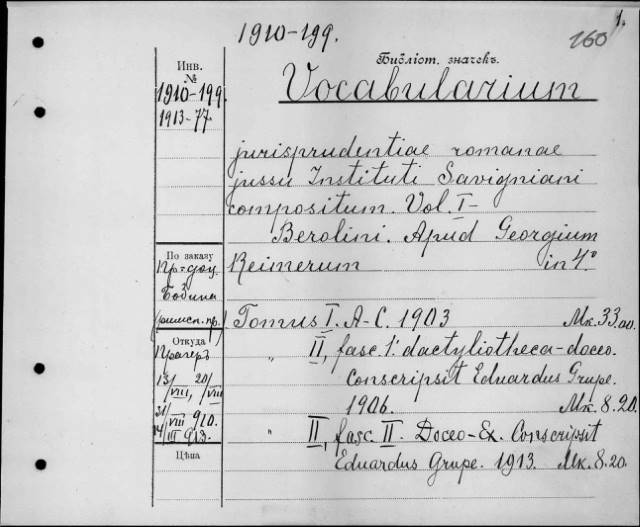 1910-199.
1.
160
Инв.
№
Библіот. значекъ.
1910-199.
Vocabularium
1913-77.
jurisprudentiae romanae
jussu Instituti Savigniani
compositum. Vol. I-
Berolini. Apud Georgium
По заказу
Reimerum in 4°
Пр.-доц.
Бобина
(римск. пр.)
Tomus I. A-C. 1903 Mk. 33.00.
Откуда
Прагеръ
II, fasc. 1. dactyliotheca-doceo.
13/VIII, 20/VIII
Conscripsit Eduardus Grupe.
1906. Mk. 8.20.
31/VIII 910.
14/III 913.
" II, fasc. II. Doceo-Ex. Conscripsit
Цѣна
Eduardus Grupe. 1913. Mk. 8.20.